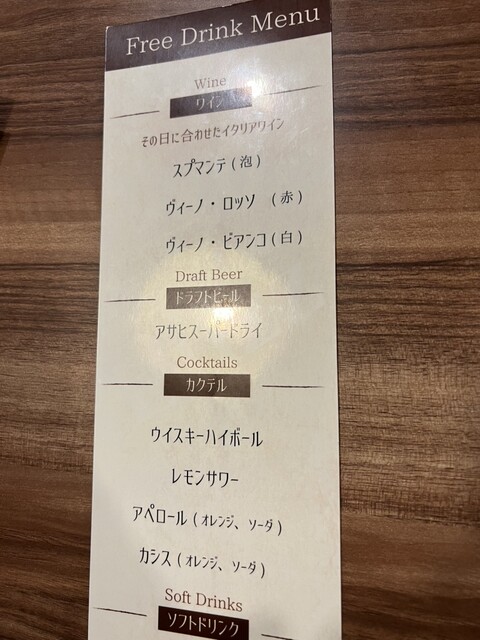 Free Drink Menu
Wine
ワイン
その日に合わせたイタリアワイン
スプマンテ ( 泡 )
ヴィーノ・ロッソ ( 赤 )
ヴィーノ・ビアンコ ( 白 )
Draft Beer
ドラフトビール
アサヒスーパードライ
Cocktails
カクテル
ウイスキーハイボール
レモンサワー
アペロール ( オレンジ、ソーダ )
カシス ( オレンジ、ソーダ )
Soft Drinks
ソフトドリンク